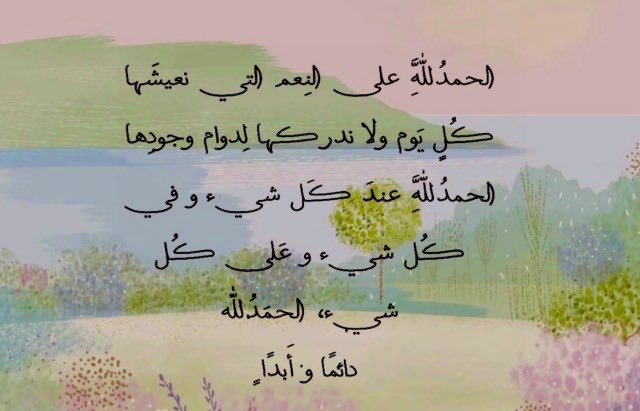 الحمدُللّٰهَِّ على النِعم التي نعيشَها
كُلِ يَوم ولا ندركها لِدوام وجودِها
الحمدُللّٰهَِّ عندَ كَل شيء و في
كُل شيء و عَلى كُل
شيء، الحمَدُللّٰه
دائمًا و أَبدًاٍ